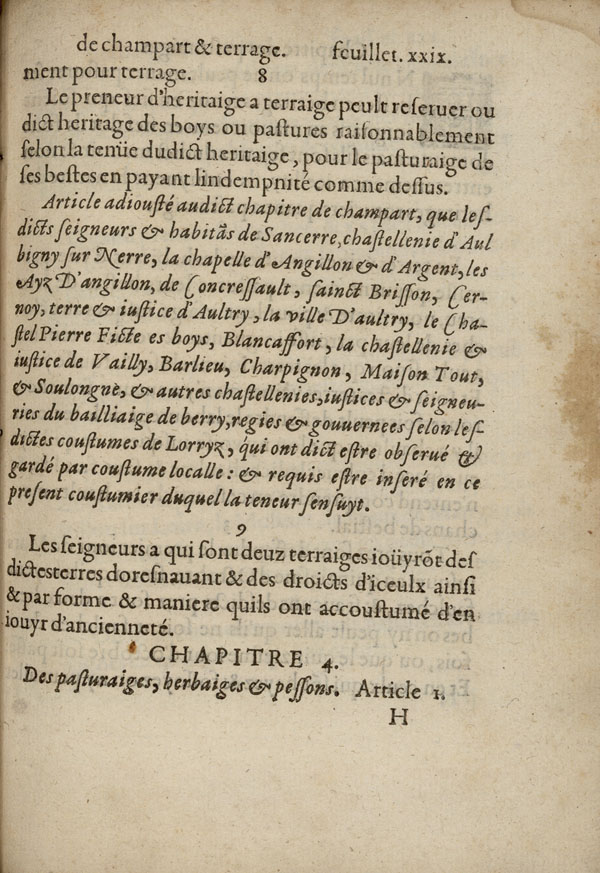 de champart & terrage. feuillet. xxix.
ment pour terrage. 8
Le preneur d'heritaige a terraige peult reseruer ou
dict heritage des boys ou pastures raisonnablement
selon la tenüe dudict heritaige, pour le pasturaige de
ses bestes en payant lindempnité comme dessus.
Article adiousté audict chapitre de champart, que les-
dicts seigneurs & habitãs de Sancerre, chastellenie d'Aul
bigny sur Nerre, la chapelle d'Angillon & d'Argent, les
Ayz D'angillon, de Concressault, sainct Brisson, Cer-
noy, terre & iustice d'Aultry, la ville D'aultry, le Cha-
stel Pierre Ficte es boys, Blancaffort, la chastellenie &
iustice de Vailly, Barlieu, Charpignon, Maison Tout,
& Soulongne, & autres chastellenies, iustices & seigneu-
ries du bailliaige de berry, regies & gouuernees selon les-
dictes coustumes de Lorryz, qui ont dict estre obserué &
gardé par coustume localle: & requis estre inseré en ce
present coustumier duquel la teneur sensuyt.
9
Les seigneurs a qui sont deuz terraiges ioüyrõt des
dictesterres doresnauant & des droicts d'iceulx ainsi
& par forme & maniere quils ont accoustumé d'en
iouyr d'ancienneté.
CHAPITRE 4.
Des pasturaiges, herbaiges & pessons. Article 1.
H